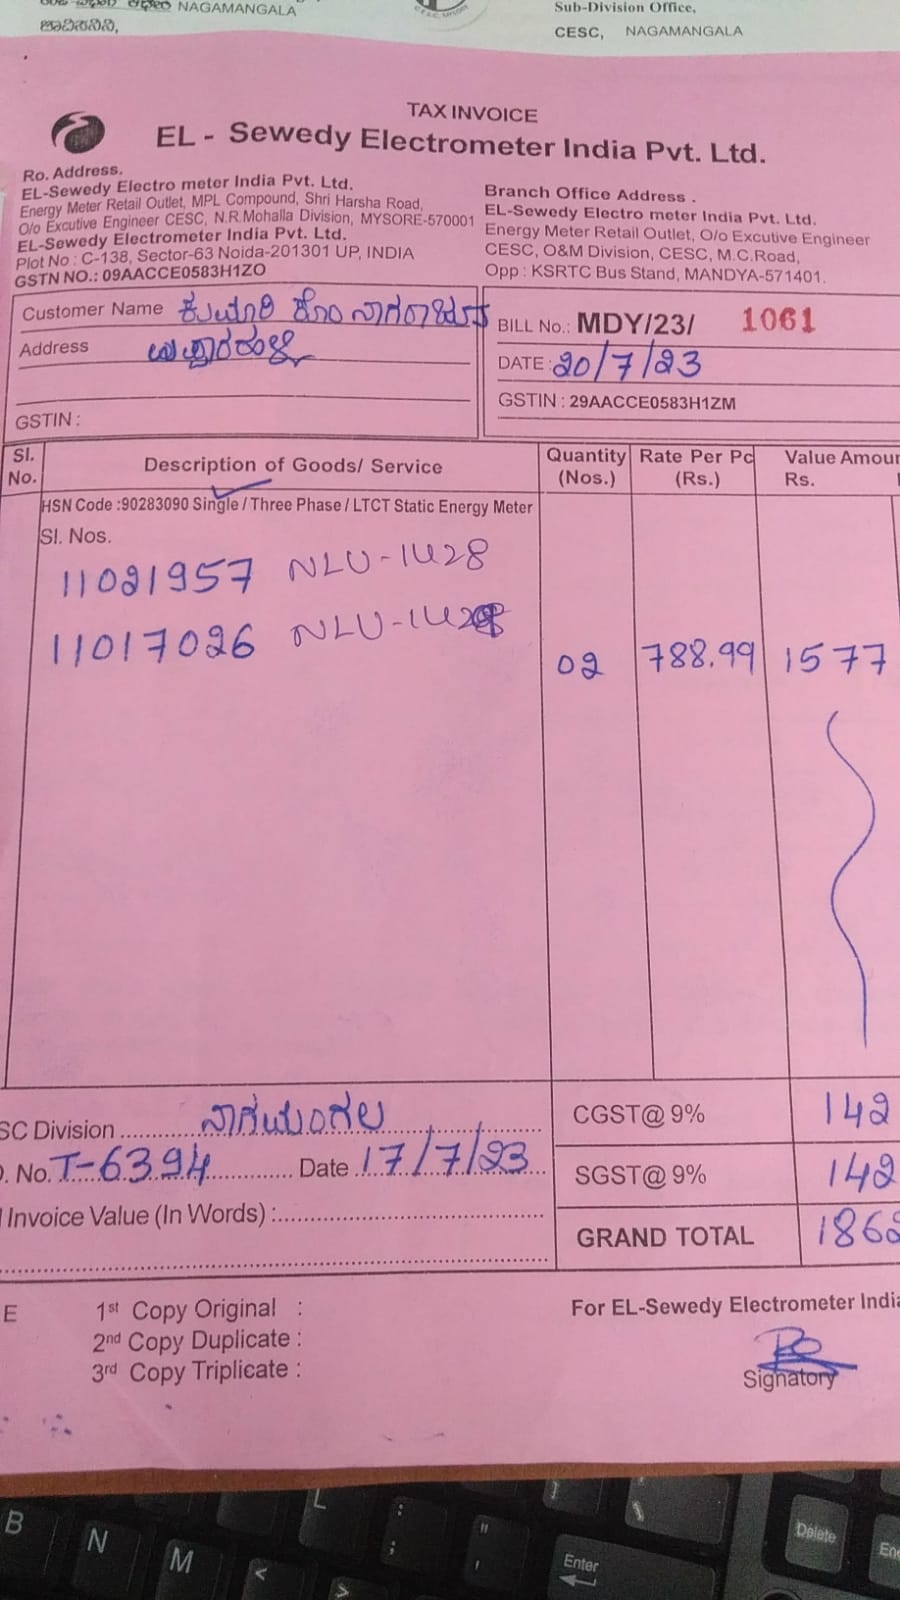 NAGAMANGALA
Sub-Division Office,
CESC, NAGAMANGALA
TAX INVOICE
EL - Sewedy Electrometer India Pvt. Ltd.
Ro. Address.
EL-Sewedy Electro meter India Pvt. Ltd.
Energy Meter Retail Outlet, MPL Compound, Shri Harsha Road,
O/o Excutive Engineer CESC, N.R.Mohalla Division, MYSORE-570001
EL-Sewedy Electrometer India Pvt. Ltd.
Plot No : C-138, Sector-63 Noida-201301 UP, INDIA
GSTN NO.: 09AACCE0583H1ZO
Branch Office Address .
EL-Sewedy Electro meter India Pvt. Ltd.
Energy Meter Retail Outlet, O/o Excutive Engineer
CESC, O&M Division, CESC, M.C.Road,
Opp : KSRTC Bus Stand, MANDYA-571401.
Customer Name
Address
GSTIN :
BILL No.: MDY/23/ 1061
DATE : 20/7/23
GSTIN : 29AACCE0583H1ZM
Sl. No. Description of Goods/ Service Quantity (Nos.) Rate Per Pc (Rs.) Value Amour Rs.
HSN Code :90283090 Single / Three Phase / LTCT Static Energy Meter
Sl. Nos.
11021957 NLU-1428
11017026 NLU-1428
02 788.99 1577
SC Division ನಾಗಮಂಗಲ
CGST@ 9% 142
O. No. T-6394 Date 17/7/23
SGST@ 9% 142
Invoice Value (In Words) :
GRAND TOTAL 186
E 1st Copy Original :
2nd Copy Duplicate :
3rd Copy Triplicate :
For EL-Sewedy Electrometer India
Signatory
B
N
M
L
:
;
"
'
<
>
Enter
Delete